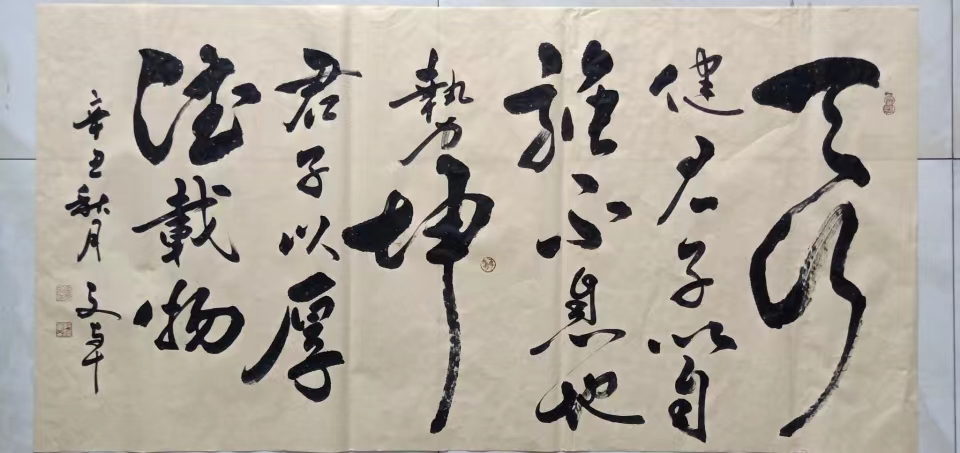 天行
健君子以自
強不息地
勢坤
君子以厚
德載物
辛丑秋月文